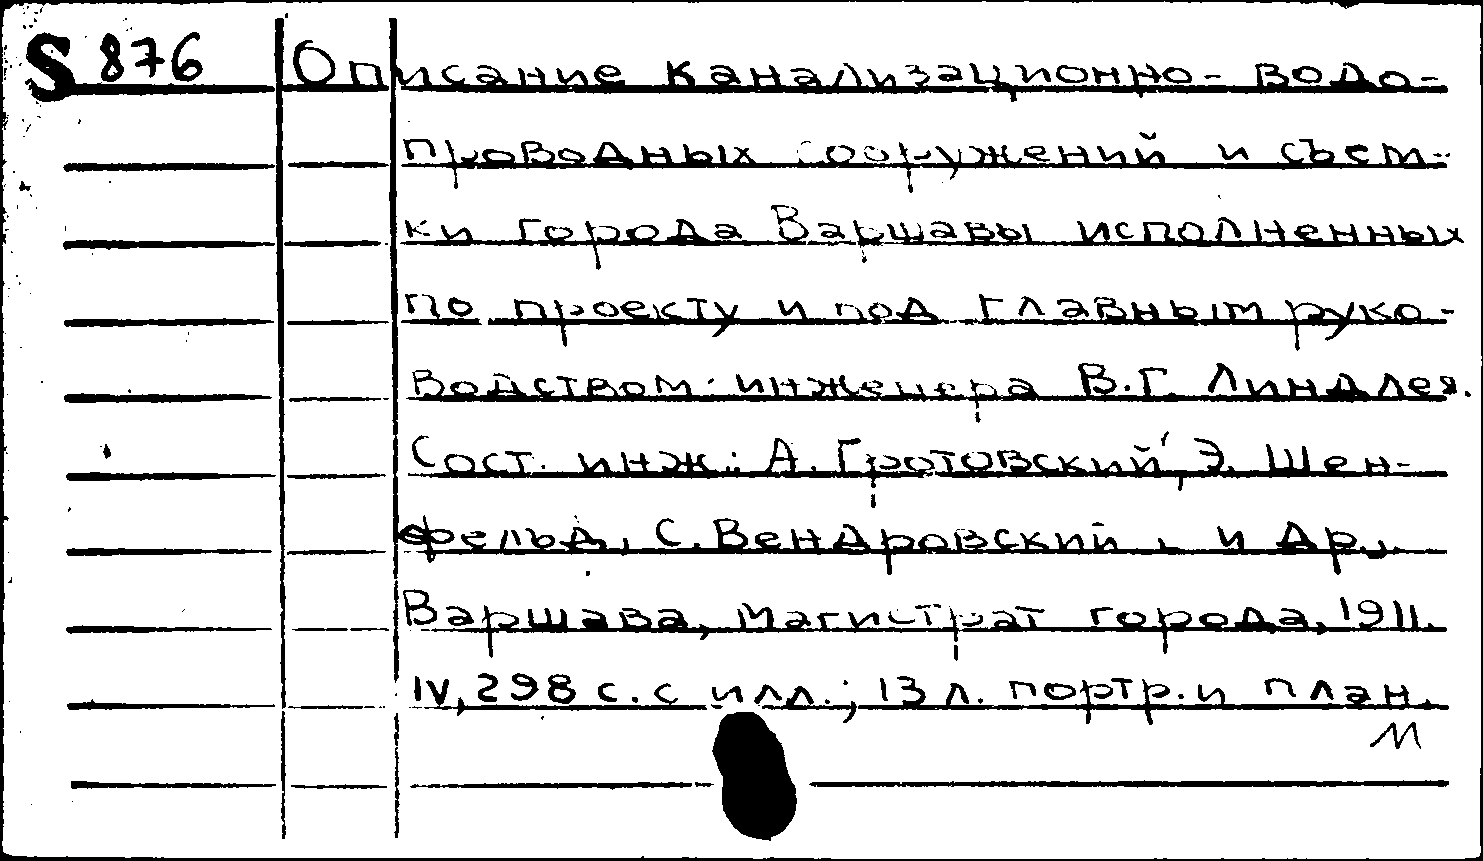 S 876 Описание канализационно-водо-
проводных сооружений и съем-
ки города Варшавы исполненных
по проекту и под главным руко-
водством инженера В.Г. Линдлея.
Сост. инж.: А. Гротовский, Э. Шен-
фельд, С. Вендровский, и др.,
Варшава, Магистрат города, 1911.
IV, 298 с. с илл.; 13 л. портр. и план.
М